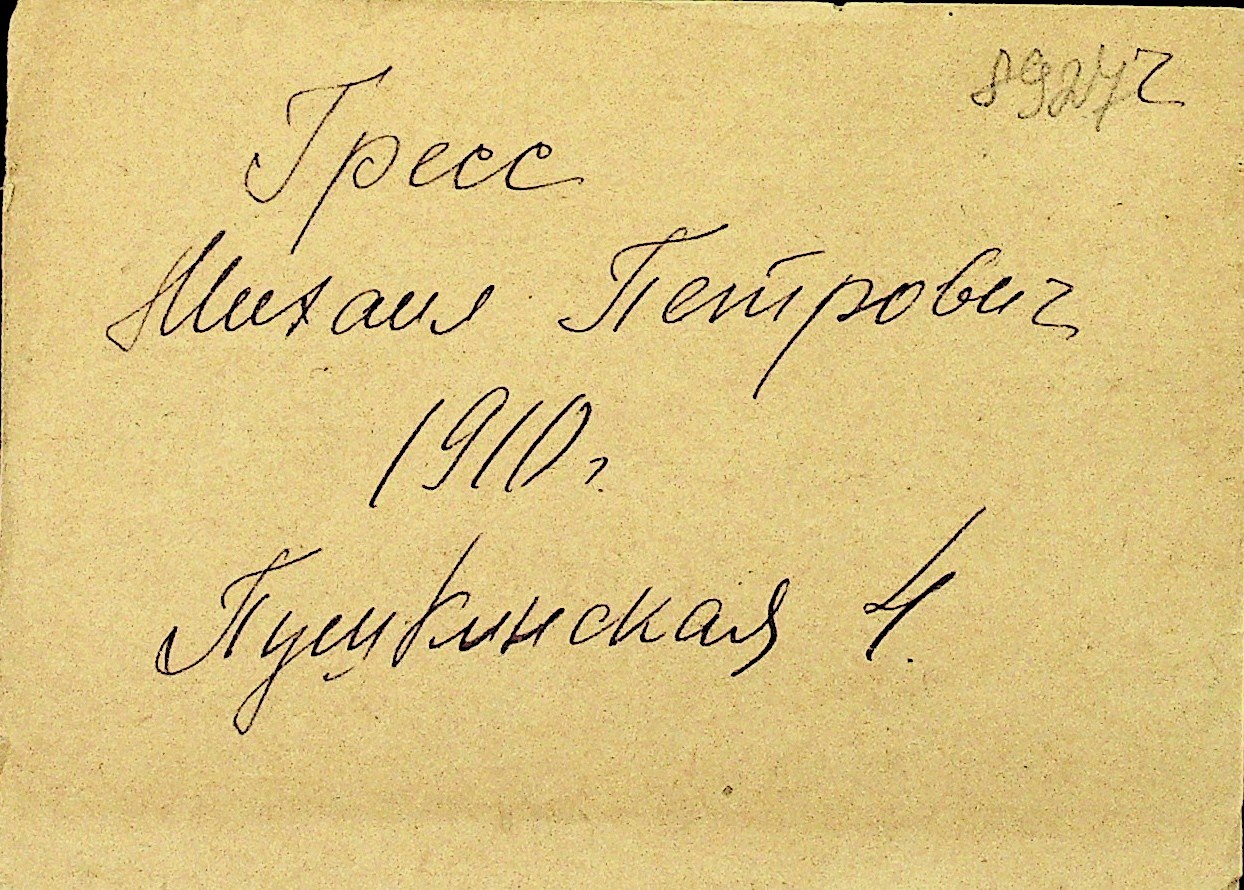 8927 ч
Гресс
Михаил Петрович
1910 г.
Пушкинская 4.